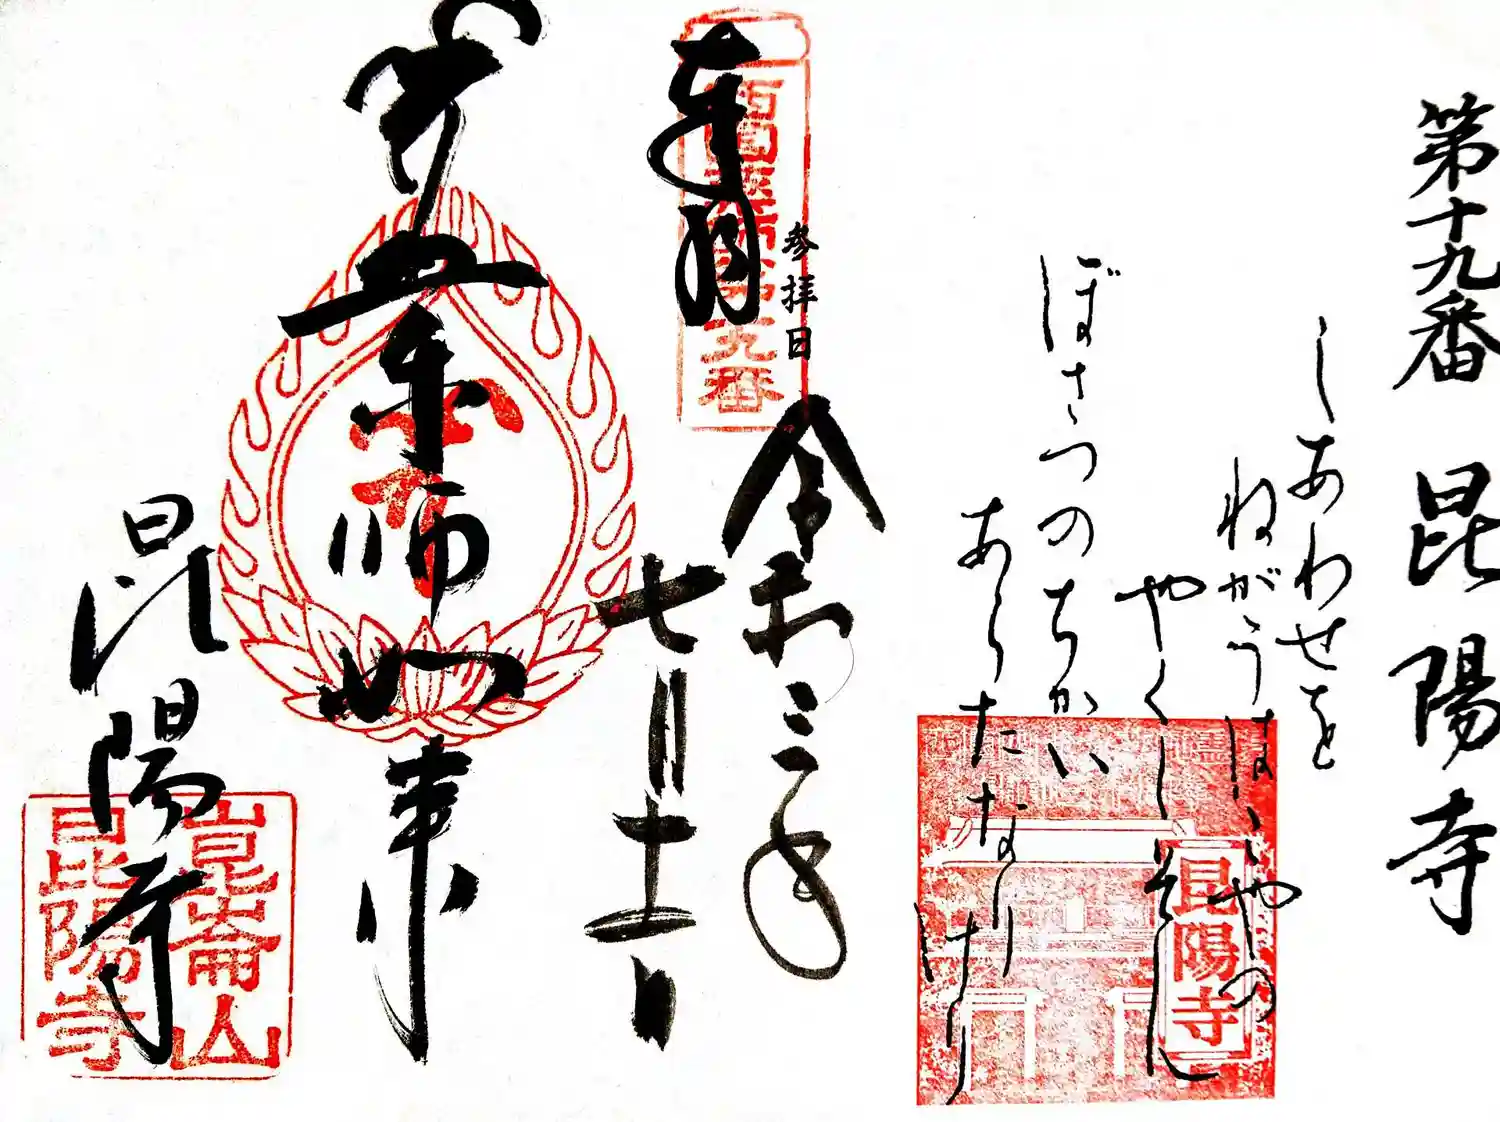 第十九番 昆陽寺
しあわせを
ねがうはこやの
やくしそん
ぼさつのちかい
あらたなりけり
昆陽寺
奉拝
西国薬師第十九番
参拝日
令和三年
七月十一日
薬師如来
昆陽寺
崑崙山
昆陽寺